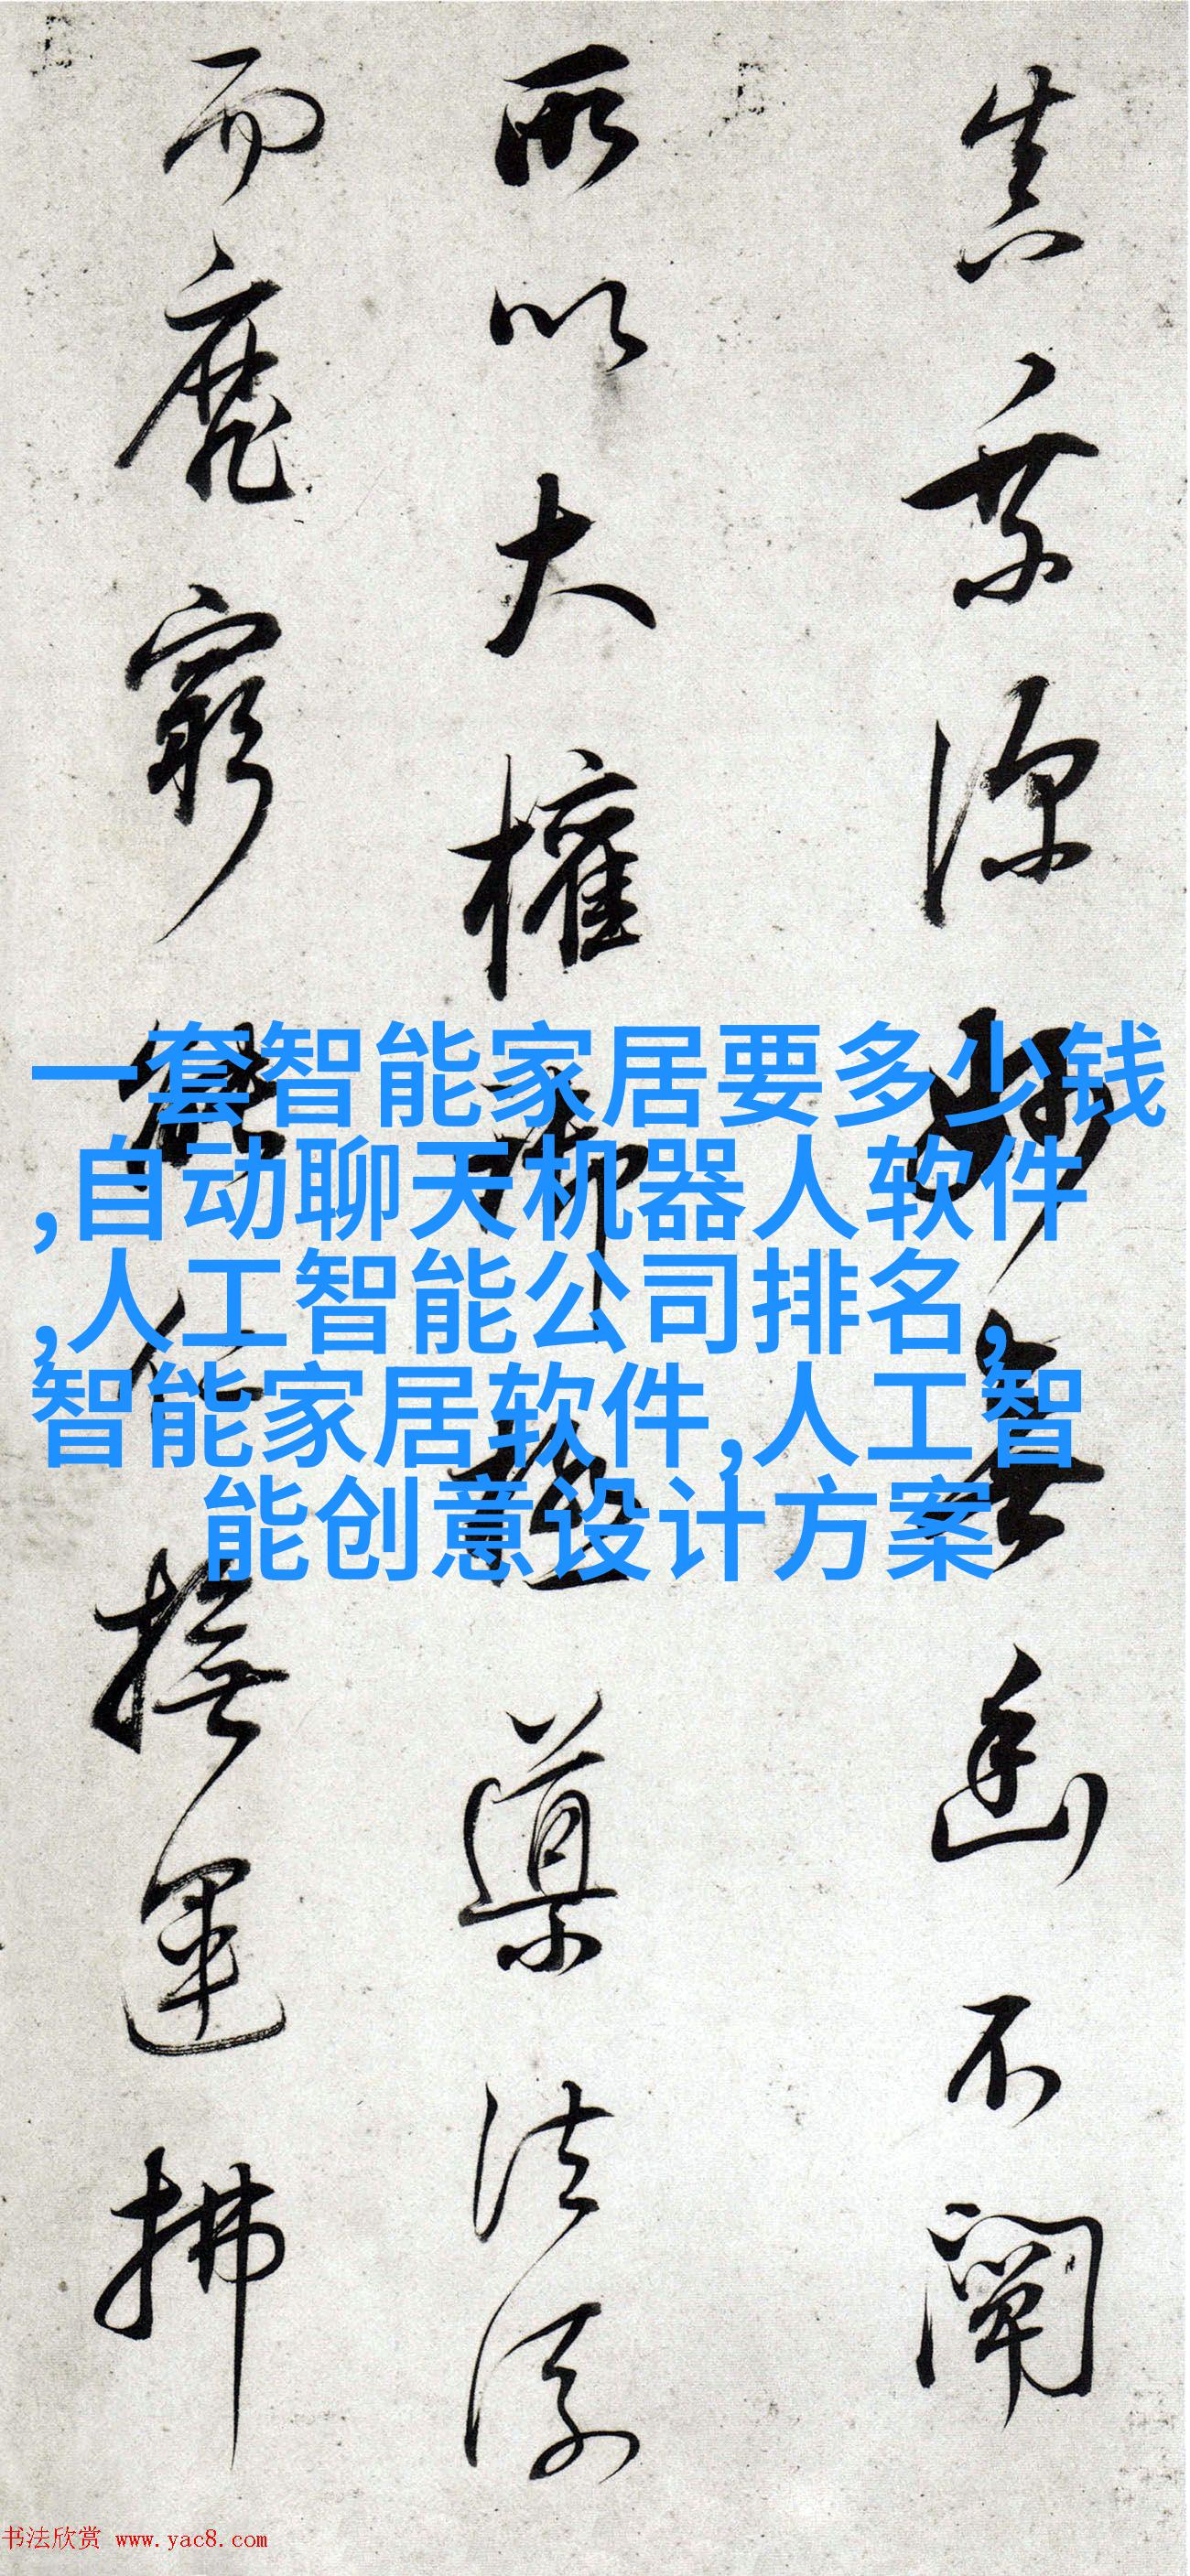 真深妙無幽不闡
所以大權御極導法流
而靡窮能仁撫運拂
一套智能家居要多少钱
,自动聊天机器人软件
,人工智能公司排名,
智能家居软件,人工智
能创意设计方案
书法欣赏 www.yac8.com